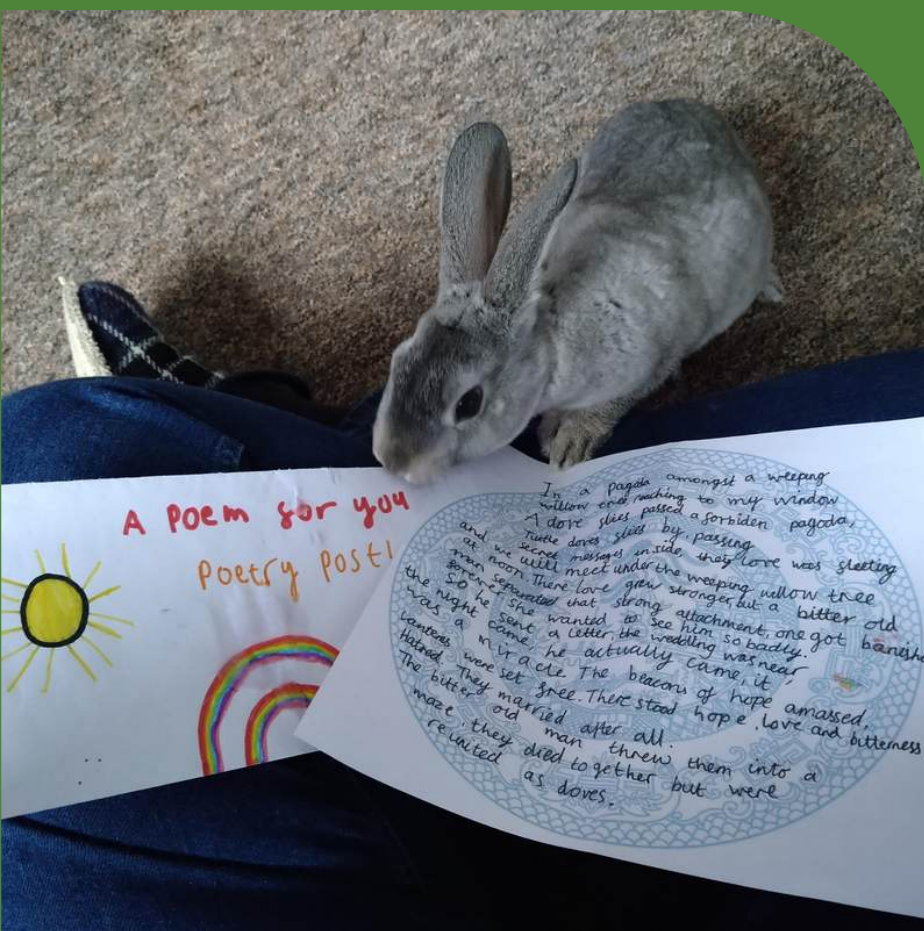 A Poem for you
Poetry Post!
In a pagoda amongst a weeping
willow tree reaching to my window
A dove flies passed a forbiden pagoda,
Turtle doves flies by, passing
secret messages inside, they love was fleeting
and we will meet under the weeping willow tree
at noon. There love grew stronger, but a bitter old
man separated that strong attachment, one got
forever she wanted to see him so badly.
So he sent a letter, the wedding was near
the night came, he actually came, it
was a miracle. The beacons of hope amassed.
Lanterns were set free. There stood hope, love and bitterness
Hatred. They married after all.
The bitter old man threw them into a
maze, they died together but were
reunited as doves.